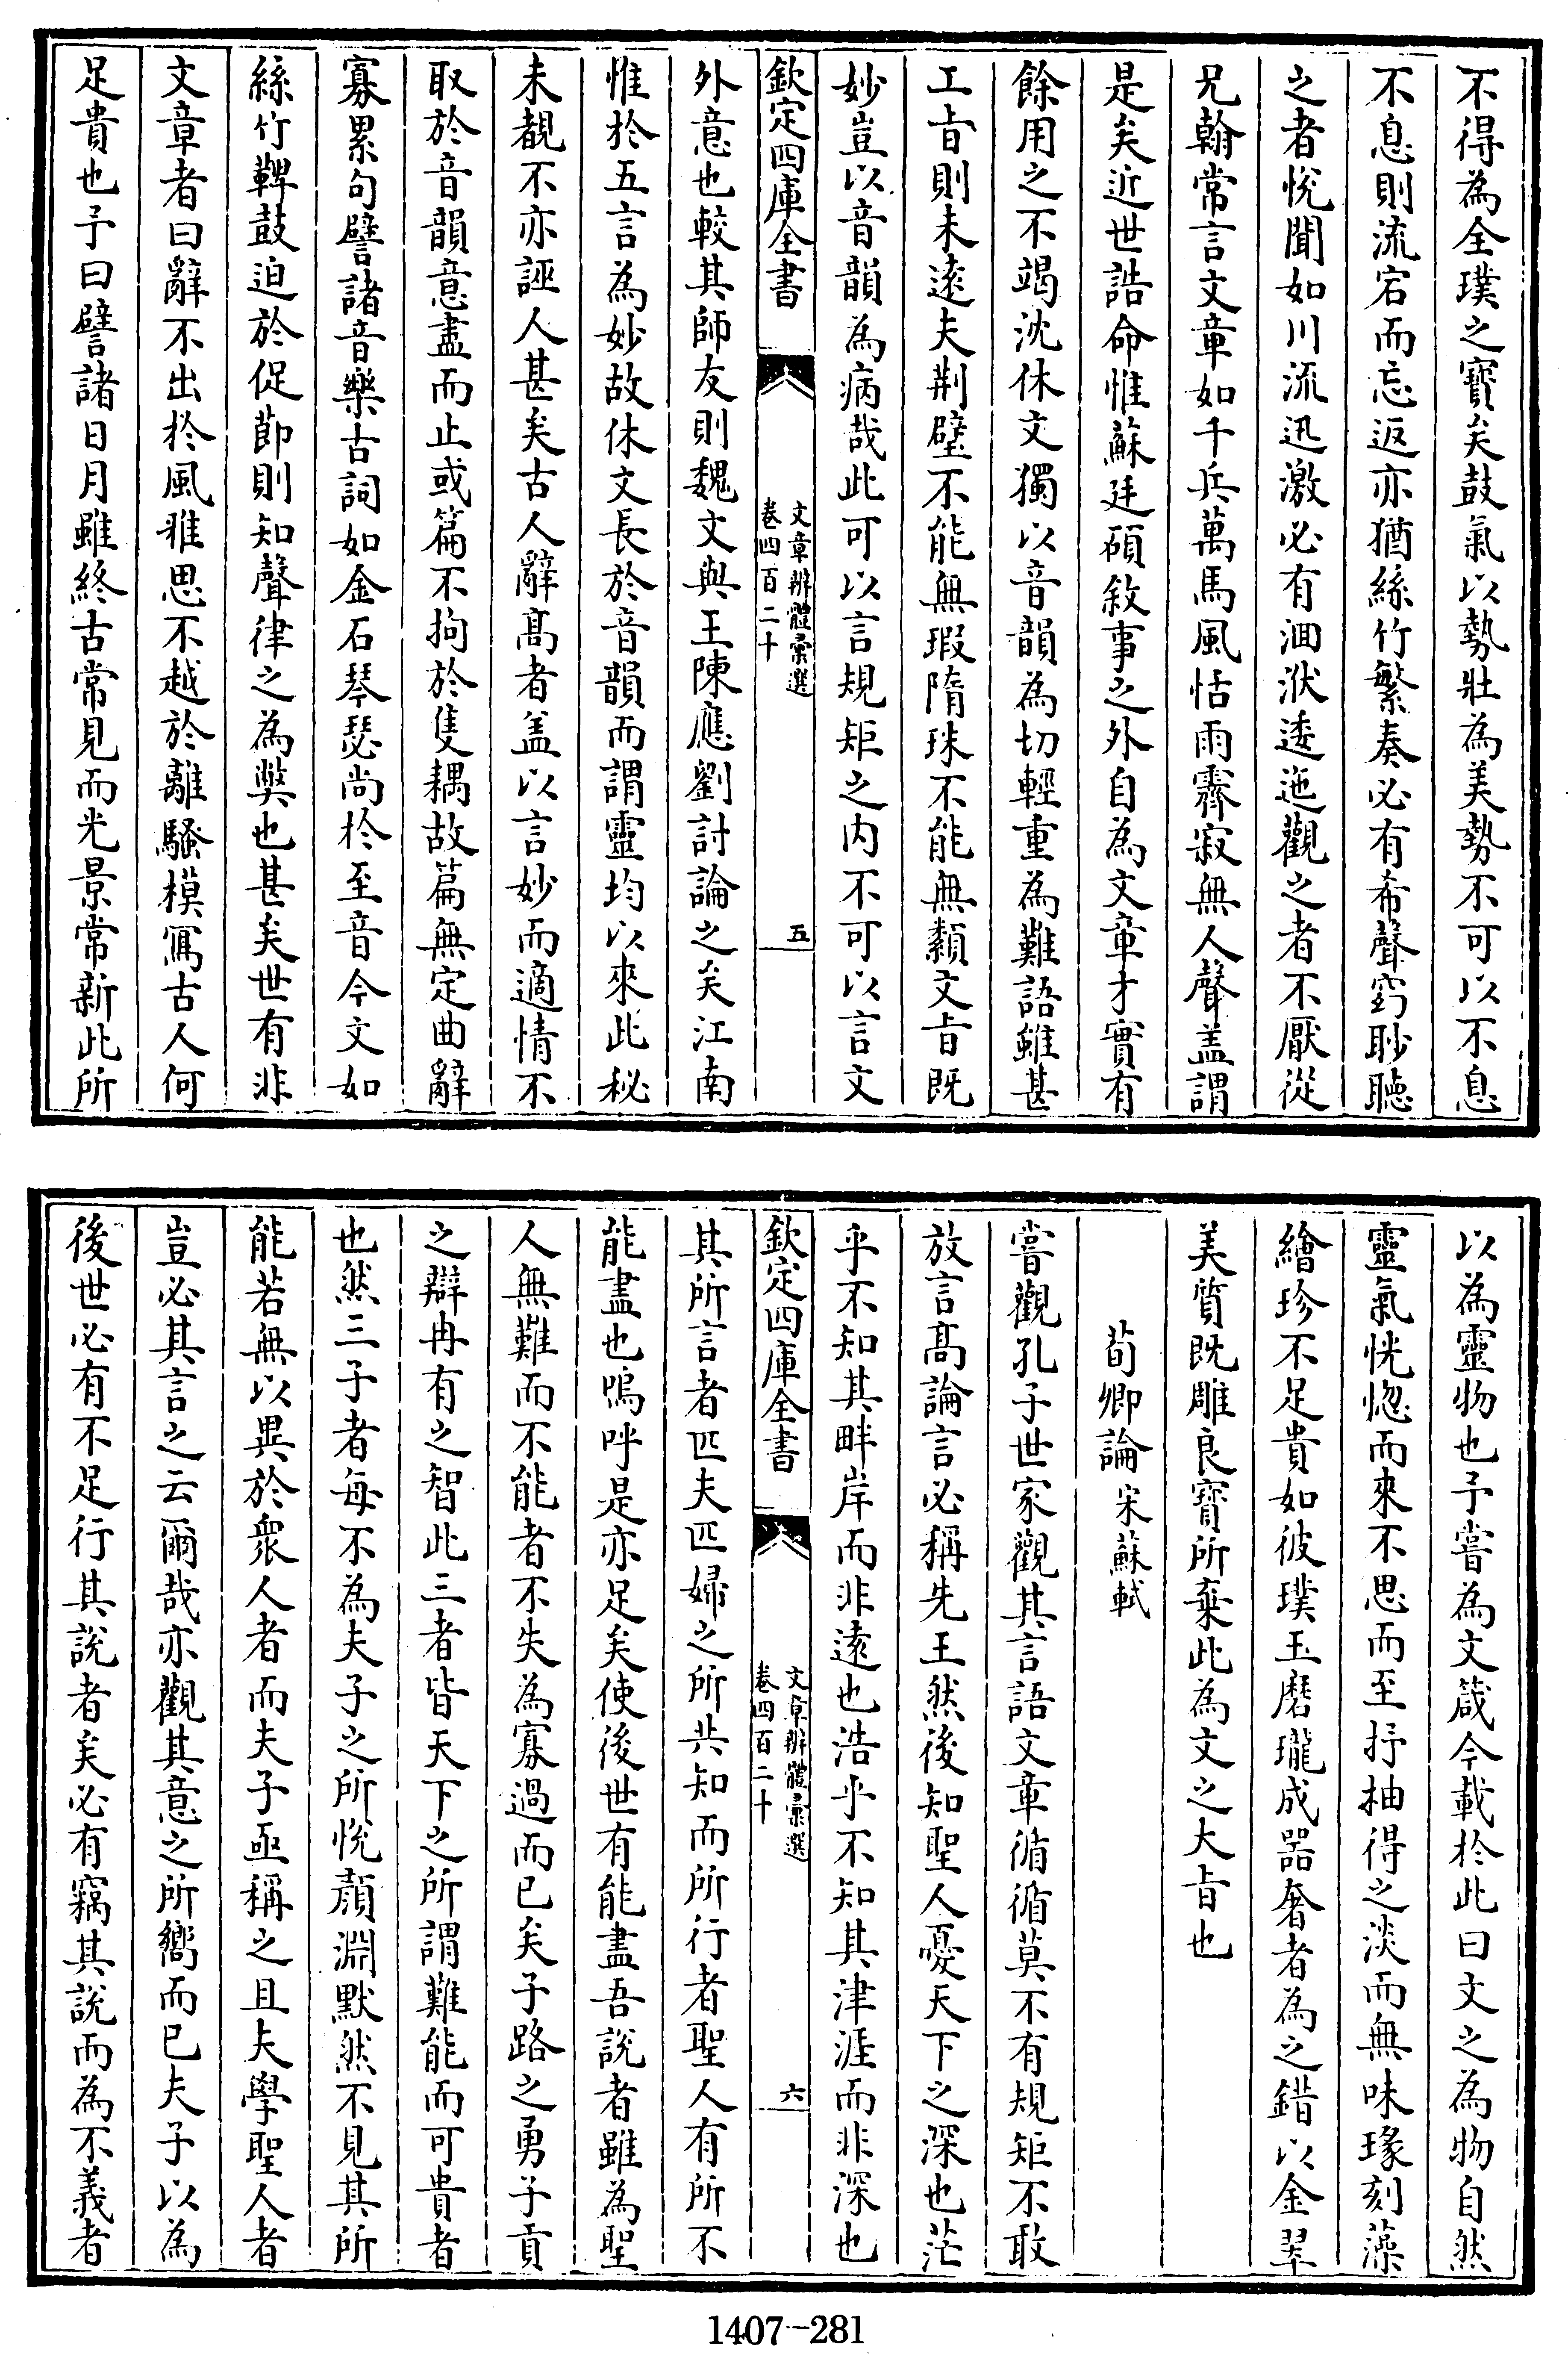 不得為全璞之寳矣鼓氣以勢壯為美勢不可以不息
不息則流宕而忘返亦猶絲竹繁奏必有希聲窈眇聽
之者悦聞如川流迅激必有洄洑逶迤觀之者不厭從
兄翰常言文章如千兵萬馬風恬雨霽寂無人聲盖謂
是矣近世誥命惟蘇廷碩敘事之外自為文章才實有
餘用之不竭沈休文獨以音韻為切輕重為難語雖甚
工㫖則未逺夫荆璧不能無瑕隋珠不能無纇文㫖既
妙豈以音韻為病哉此可以言規矩之内不可以言文
欽定四庫全書
文章辨體彙選
卷四百二十
五
外意也較其師友則魏文與王陳應劉討論之矣江南
惟於五言為妙故休文長於音韻而謂靈均以來此秘
未覩不亦誣人甚矣古人辭髙者盖以言妙而適情不
取於音韻意盡而止或篇不拘於隻耦故篇無定曲辭
寡累句譬諸音樂古詞如金石琴瑟尚於至音今文如
絲竹鞞鼓迫於促節則知聲律之為獘也甚矣世有非
文章者曰辭不出於風雅思不越於離騷模寫古人何
足貴也予曰譬諸日月雖終古常見而光景常新此所
以為靈物也予嘗為文箴今載於此曰文之為物自然
靈氣恍惚而來不思而至抒抽得之淡而無味瑑刻藻
繪珍不足貴如彼璞玉磨瓏成器奢者為之錯以金翠
美質既雕良寳所棄此為文之大㫖也
荀卿論 宋蘇軾
嘗觀孔子世家觀其言語文章循循莫不有規矩不敢
放言髙論言必稱先王然後知聖人憂天下之深也茫
乎不知其畔岸而非逺也浩乎不知其津涯而非深也
欽定四庫全書
文章辨體彙選
卷四百二十
六
其所言者匹夫匹婦之所共知而所行者聖人有所不
能盡也嗚呼是亦足矣使後世有能盡吾説者雖為聖
人無難而不能者不失為寡過而已矣子路之勇子貢
之辯冉有之智此三者皆天下之所謂難能而可貴者
也然三子者每不為夫子之所悦顔淵黙然不見其所
能若無以異於衆人者而夫子亟稱之且夫學聖人者
豈必其言之云爾哉亦觀其意之所嚮而已夫子以為
後世必有不足行其説者矣必有竊其説而為不義者
1407-281